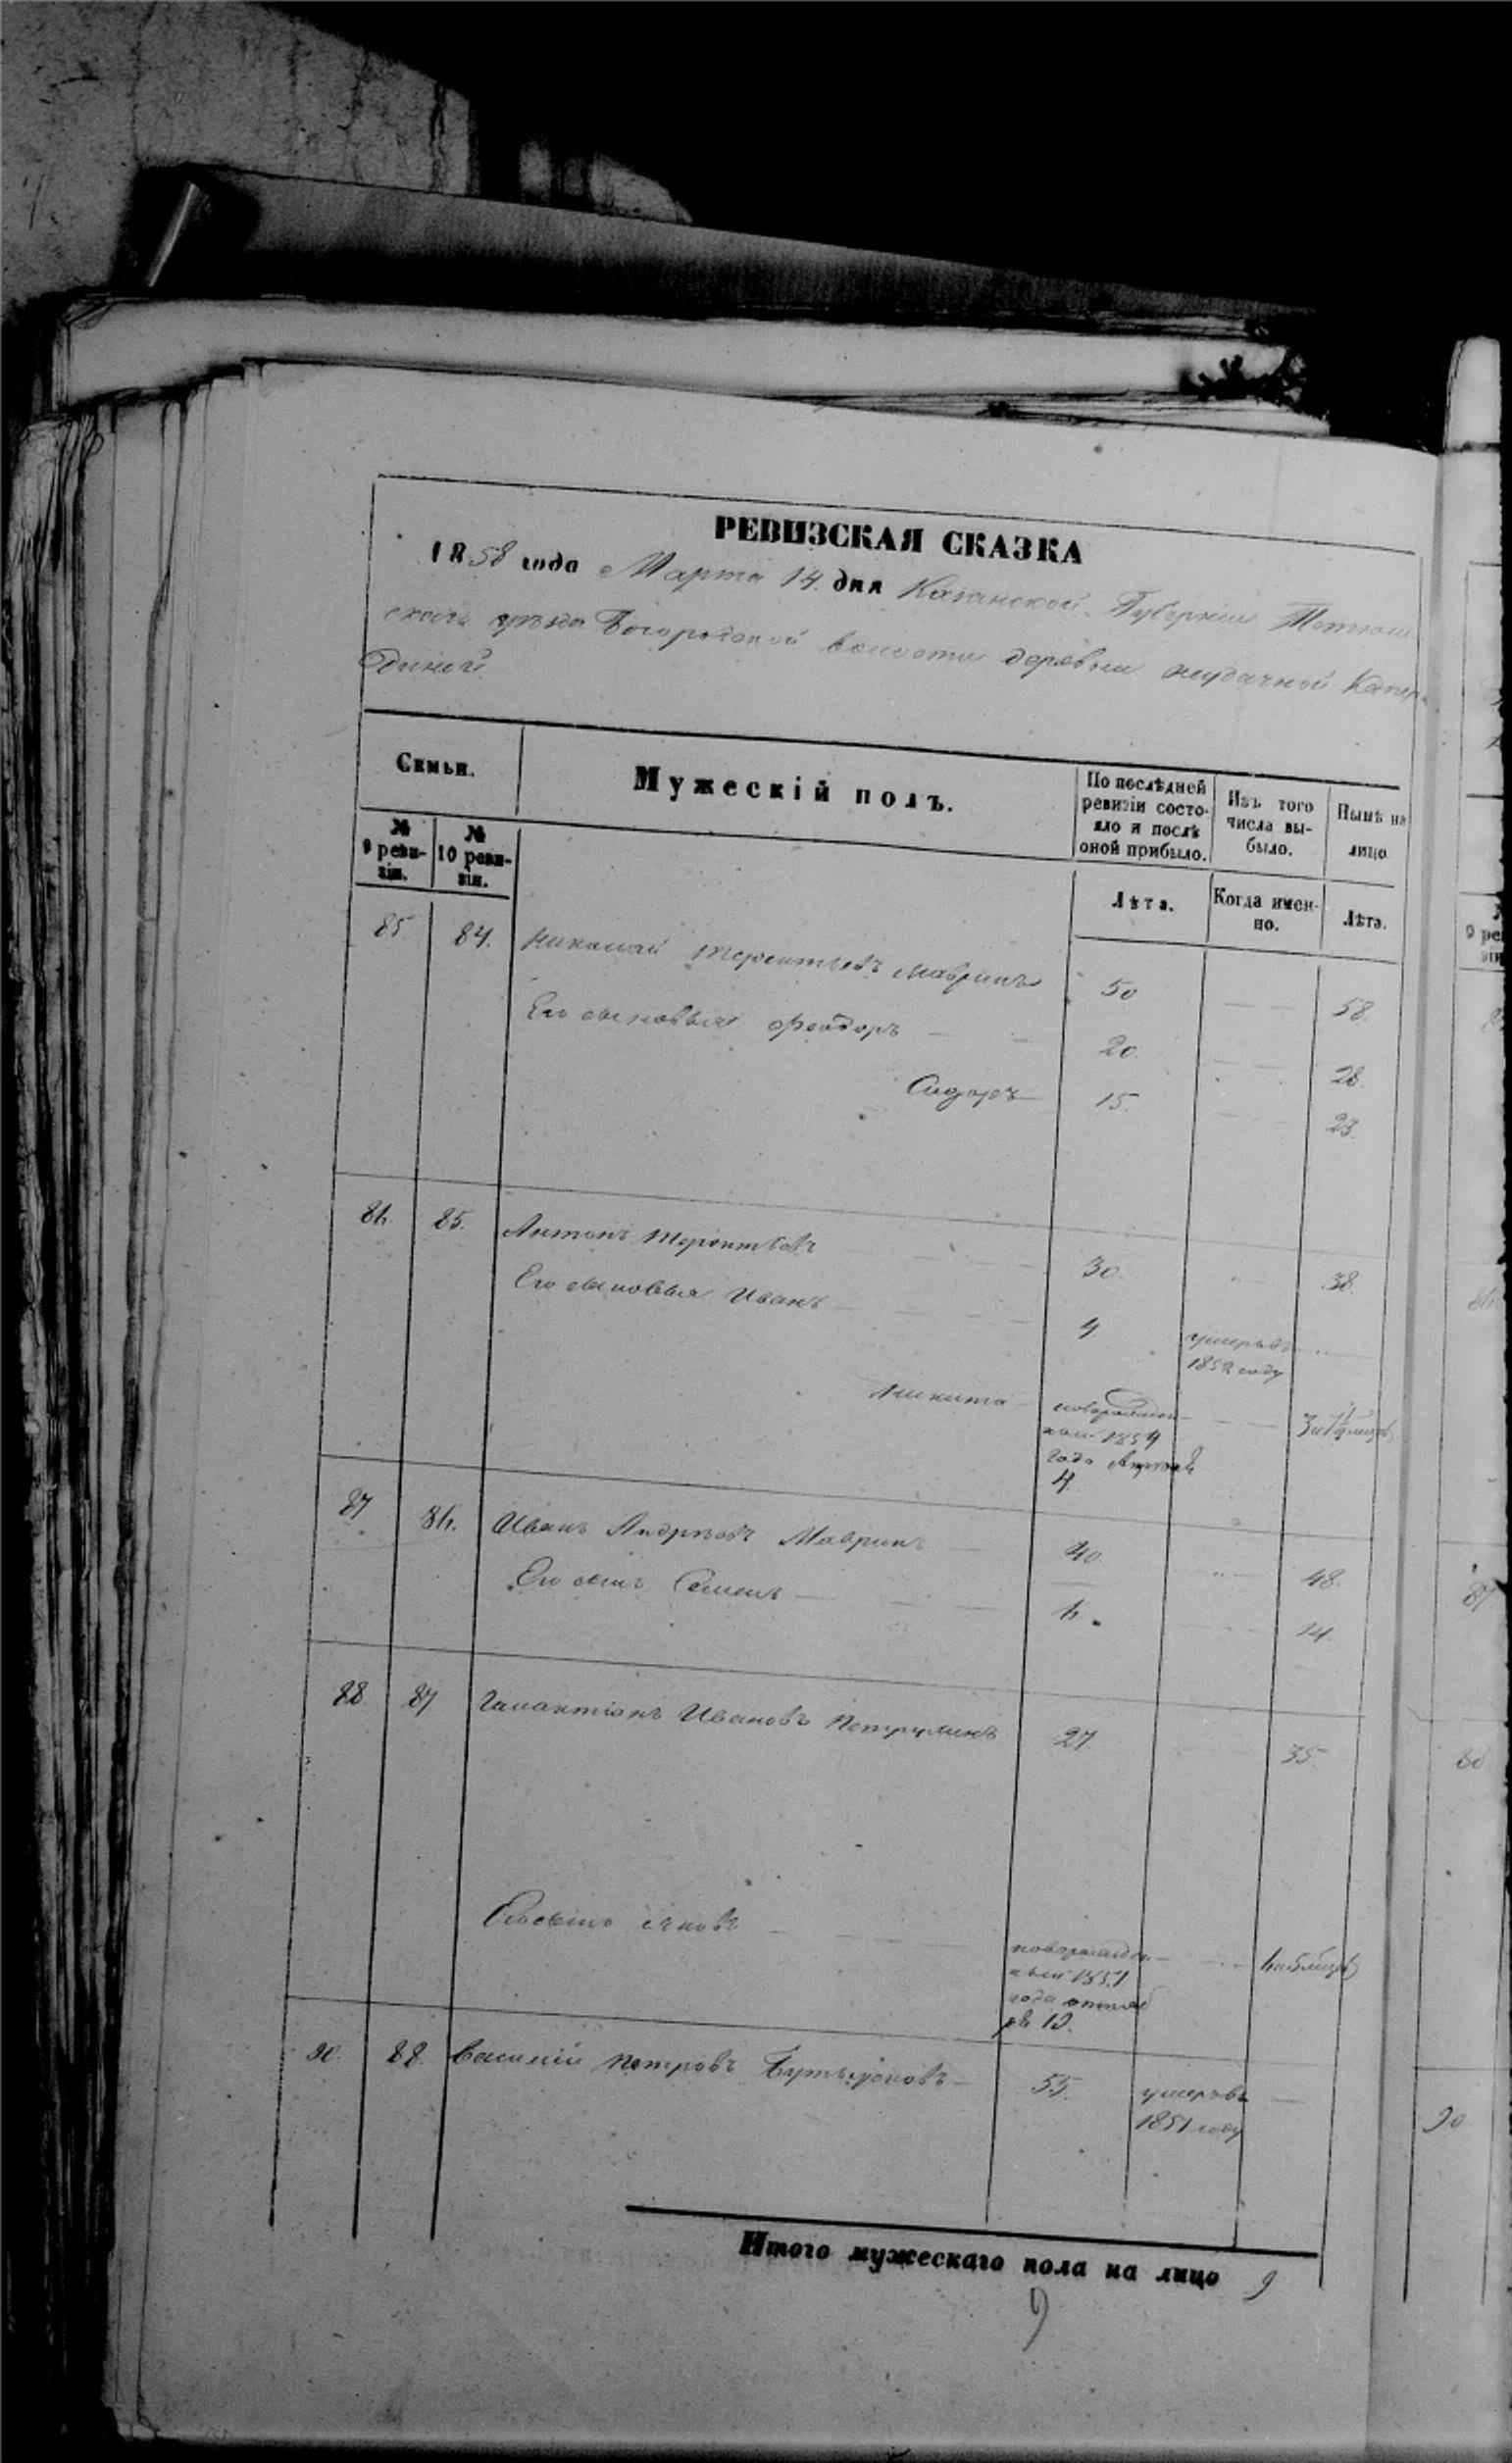 РЕВИЗСКАЯ СКАЗКА
1858 года Марта 14 дня Казанской Губернии Тетюш
скаго уѣзда Богородской волости деревни неудачной
Семьи.
Мужескій полъ.
По послѣдней ревизіи состояло и послѣ оной прибыло.
Изъ того числа выбыло.
Нынѣ на лицо
№ 9 ревизіи.
№ 10 ревизіи.
Лѣта.
Когда именно.
Лѣта.
85 84. Николай Терентьевъ Мавринъ 50 58.
Его сыновья Феодоръ 20. 28.
Сидоръ 15. 23.
86. 85. Антонъ Терентьевъ 30. 38.
Его сыновья Иванъ 4 умеръ въ
1852 году
Никита новорожден-
ный 1854
года
4
87 86. Иванъ Андрѣевъ Мавринъ 40 48.
Его сынъ Семенъ 6. 14.
88. 87 Галактіонъ Ивановъ 27. 35
Его сынъ новорожден-
ный 1851
года октяб
ря 19.
90. 88. Василій Петровъ 55. умеръ въ
1851 году
Итого мужескаго пола на лицо 9
9
9 ре
87
88
90